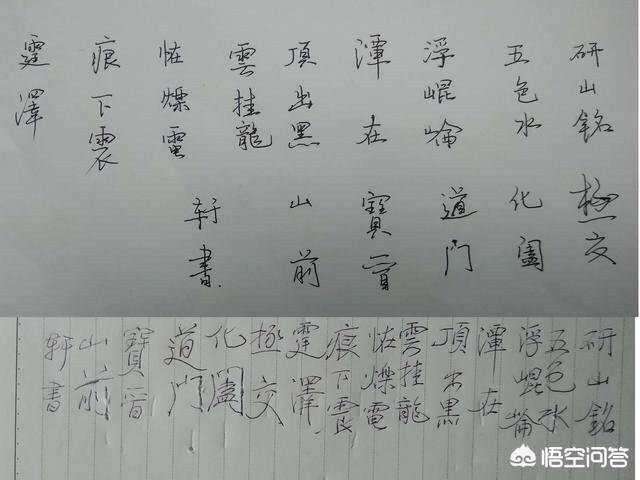 研山銘
五色水
浮崐崘
潭在
頂出黑
雲挂龍
恠爍電
痕下震
霆澤
極交
化闔
道門
寶晋
山前
軒書
研山銘
五色水
浮崐崘
潭在
頂出黑
雲挂龍
恠爍電
痕下震
霆澤
極交
化闔
道門
寶晋
山前
軒書
悟空问答